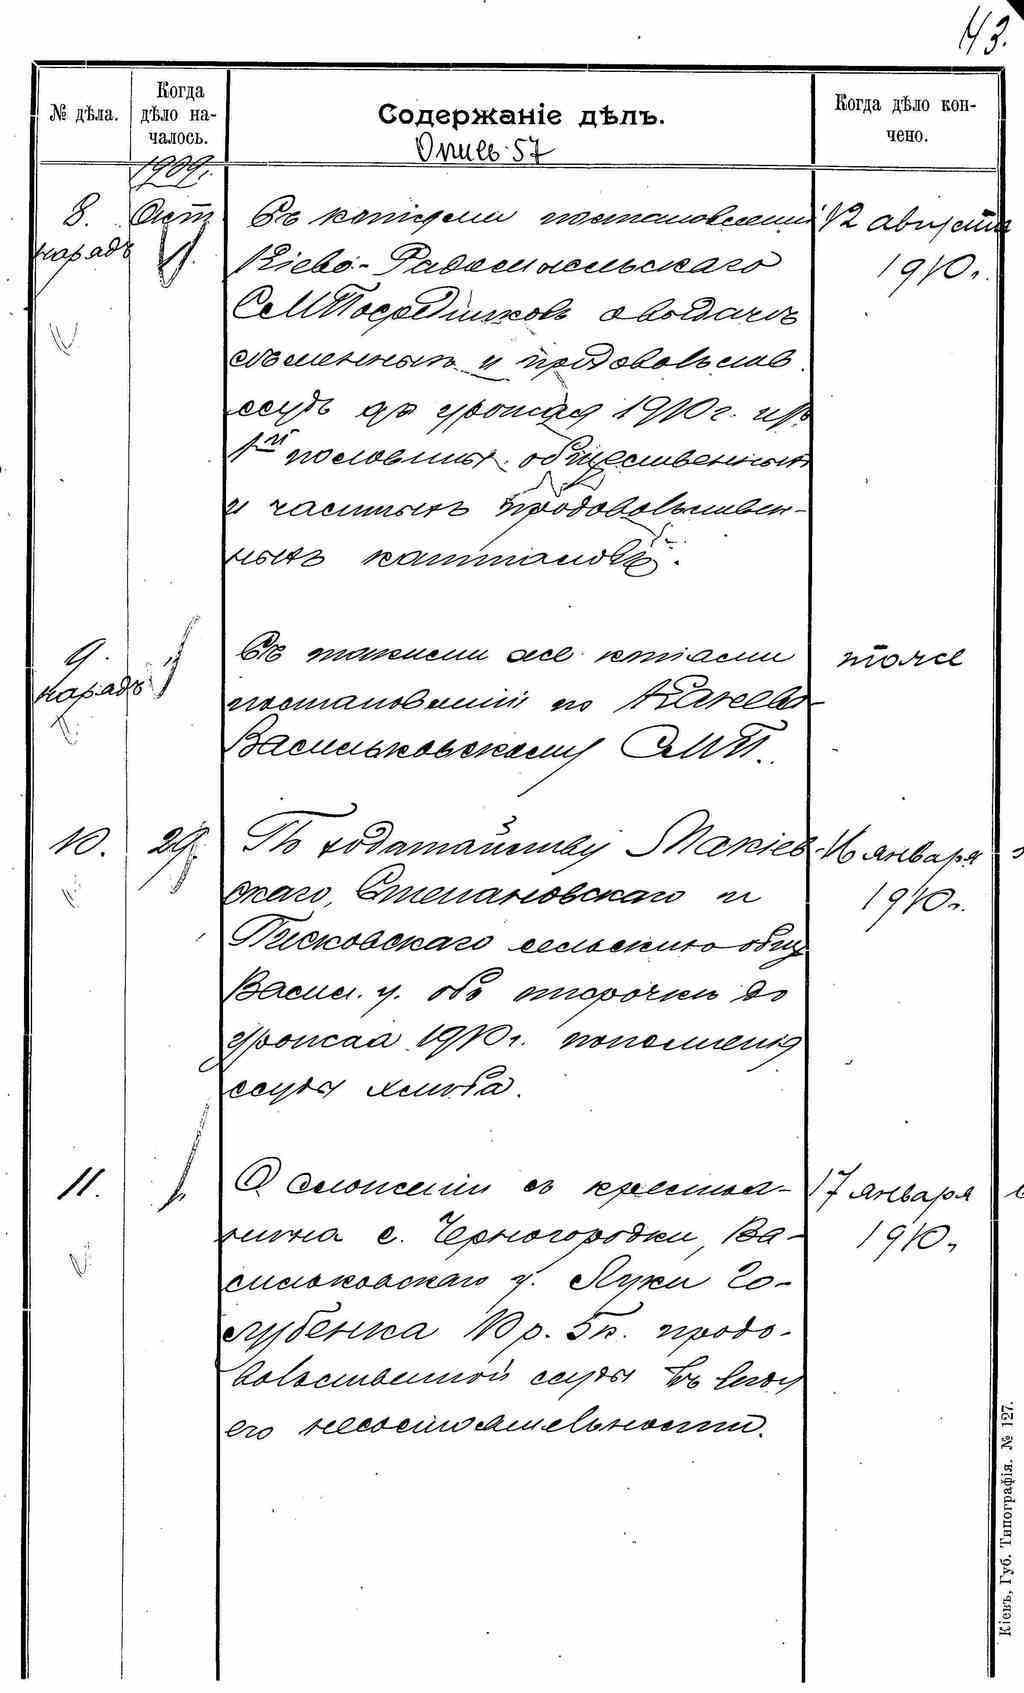 43.
№ дѣла.
Когда дѣло началось.
Содержаніе дѣлъ.
Когда дѣло кончено.
Опись 57
1909 г.
8. нарядъ
Окт.
Съ копіями постановленій
Кіево-Радомысльскаго
С. М. Посредниковъ о выдачѣ
сѣменныхъ и продовольств.
ссудъ до урожая 1910 г. изъ
1й половины общественныхъ
и частныхъ продовольствен-
ныхъ капиталовъ.
12 августа
1910 г.
9. нарядъ
Съ такими же копіями
постановленій по Канево-
Васильковскому С. М. П.
тоже
10.
29.
По ходатайству Макіев-
скаго, Степановскаго и
Песковскаго сельскихъ общ.
Васил. у. объ отсрочкѣ до
урожая 1910 г. пополненія
ссуды хлѣба.
16 января
1910 г.
11.
О сложеніи съ крестья-
нина с. Черногородки, Ва-
сильковскаго у. Луки Го-
лубенка 10 р. 5 к. продо-
вольственной ссуды въ виду
его несостоятельности.
17 января
1910 г.
Кіевъ, Губ. Типографія. № 127.